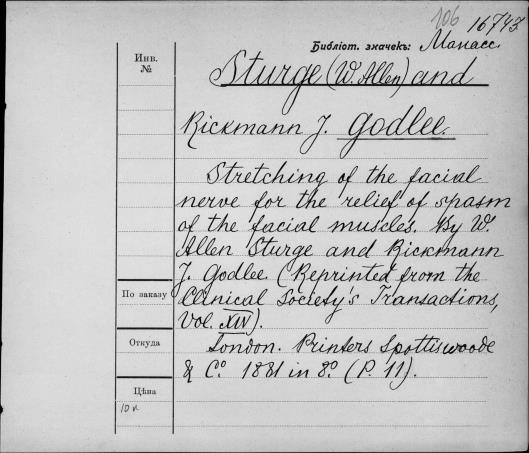 106 16743
Библіот. значекъ: Манасс.
Инв.
№
Sturge (W. Allen) and
Rickmann J. Godlee.
Stretching of the facial
nerve for the relief of spasm
of the facial muscles. By W.
Allen Sturge and Rickmann
J. Godlee. (Reprinted from the
Clinical Society's Transactions,
Vol. XIV).
London. Printers Spottiswoode
& Cº 1881 in 8º (P. 11).
По заказу
Откуда
Цѣна
10 к.